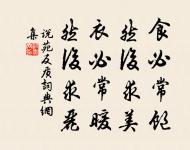 食必常飽
然後求美
衣必常暖
然後求麗
說苑反质詞典網
集